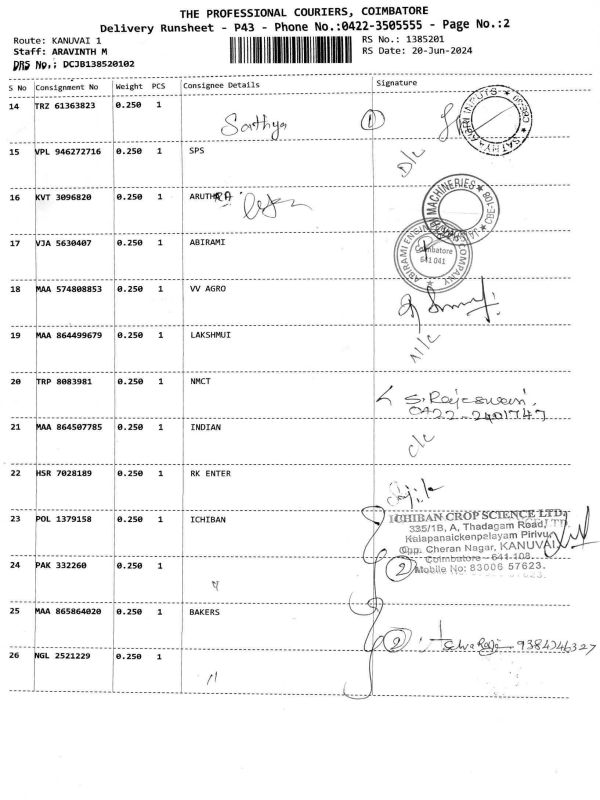 THE PROFESSIONAL COURIERS, COIMBATORE
Delivery Runsheet - P43 - Phone No.:0422-3505555 - Page No.:2
Route: KANUVAI 1 RS No.: 1385201
Staff: ARAVINTH M RS Date: 20-Jun-2024
DRS No.: DCJB138520102
S No Consignment No Weight PCS Consignee Details Signature
14 TRZ 61363823 0.250 1
Sathya 1
15 VPL 946272716 0.250 1 SPS D/C
16 KVT 3096820 0.250 1 ARUTHRA
MACHINERIES
17 VJA 5630407 0.250 1 ABIRAMI
ABIRAMI ENGINEERING COMPANY
Coimbatore
641 041
18 MAA 574808853 0.250 1 VV AGRO
19 MAA 864499679 0.250 1 LAKSHMUI
20 TRP 8083981 0.250 1 NMCT
S. Rajeswari.
0422-2401747
21 MAA 864507785 0.250 1 INDIAN
22 HSR 7028189 0.250 1 RK ENTER
23 POL 1379158 0.250 1 ICHIBAN
ICHIBAN CROP SCIENCE LTD.
335/1B, A, Thadagam Road,
Kalapanaickenpalayam Pirivu,
Opp. Cheran Nagar, KANUVAI,
Coimbatore - 641 108.
Mobile No: 83006 57623.
24 PAK 332260 0.250 1
2
〃
25 MAA 865864020 0.250 1 BAKERS
2 9384246327
26 NGL 2521229 0.250 1
〃